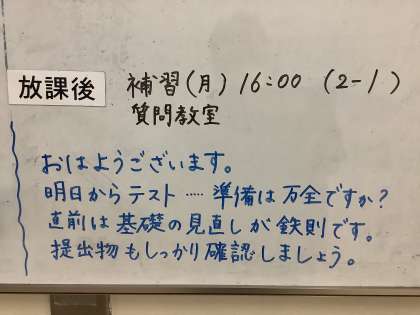 放課後 補習(月) 16:00 (2-1)
質問教室
おはようございます。
明日からテスト…… 準備は万全ですか?
直前は基礎の見直しが鉄則です。
提出物もしっかり確認しましょう。